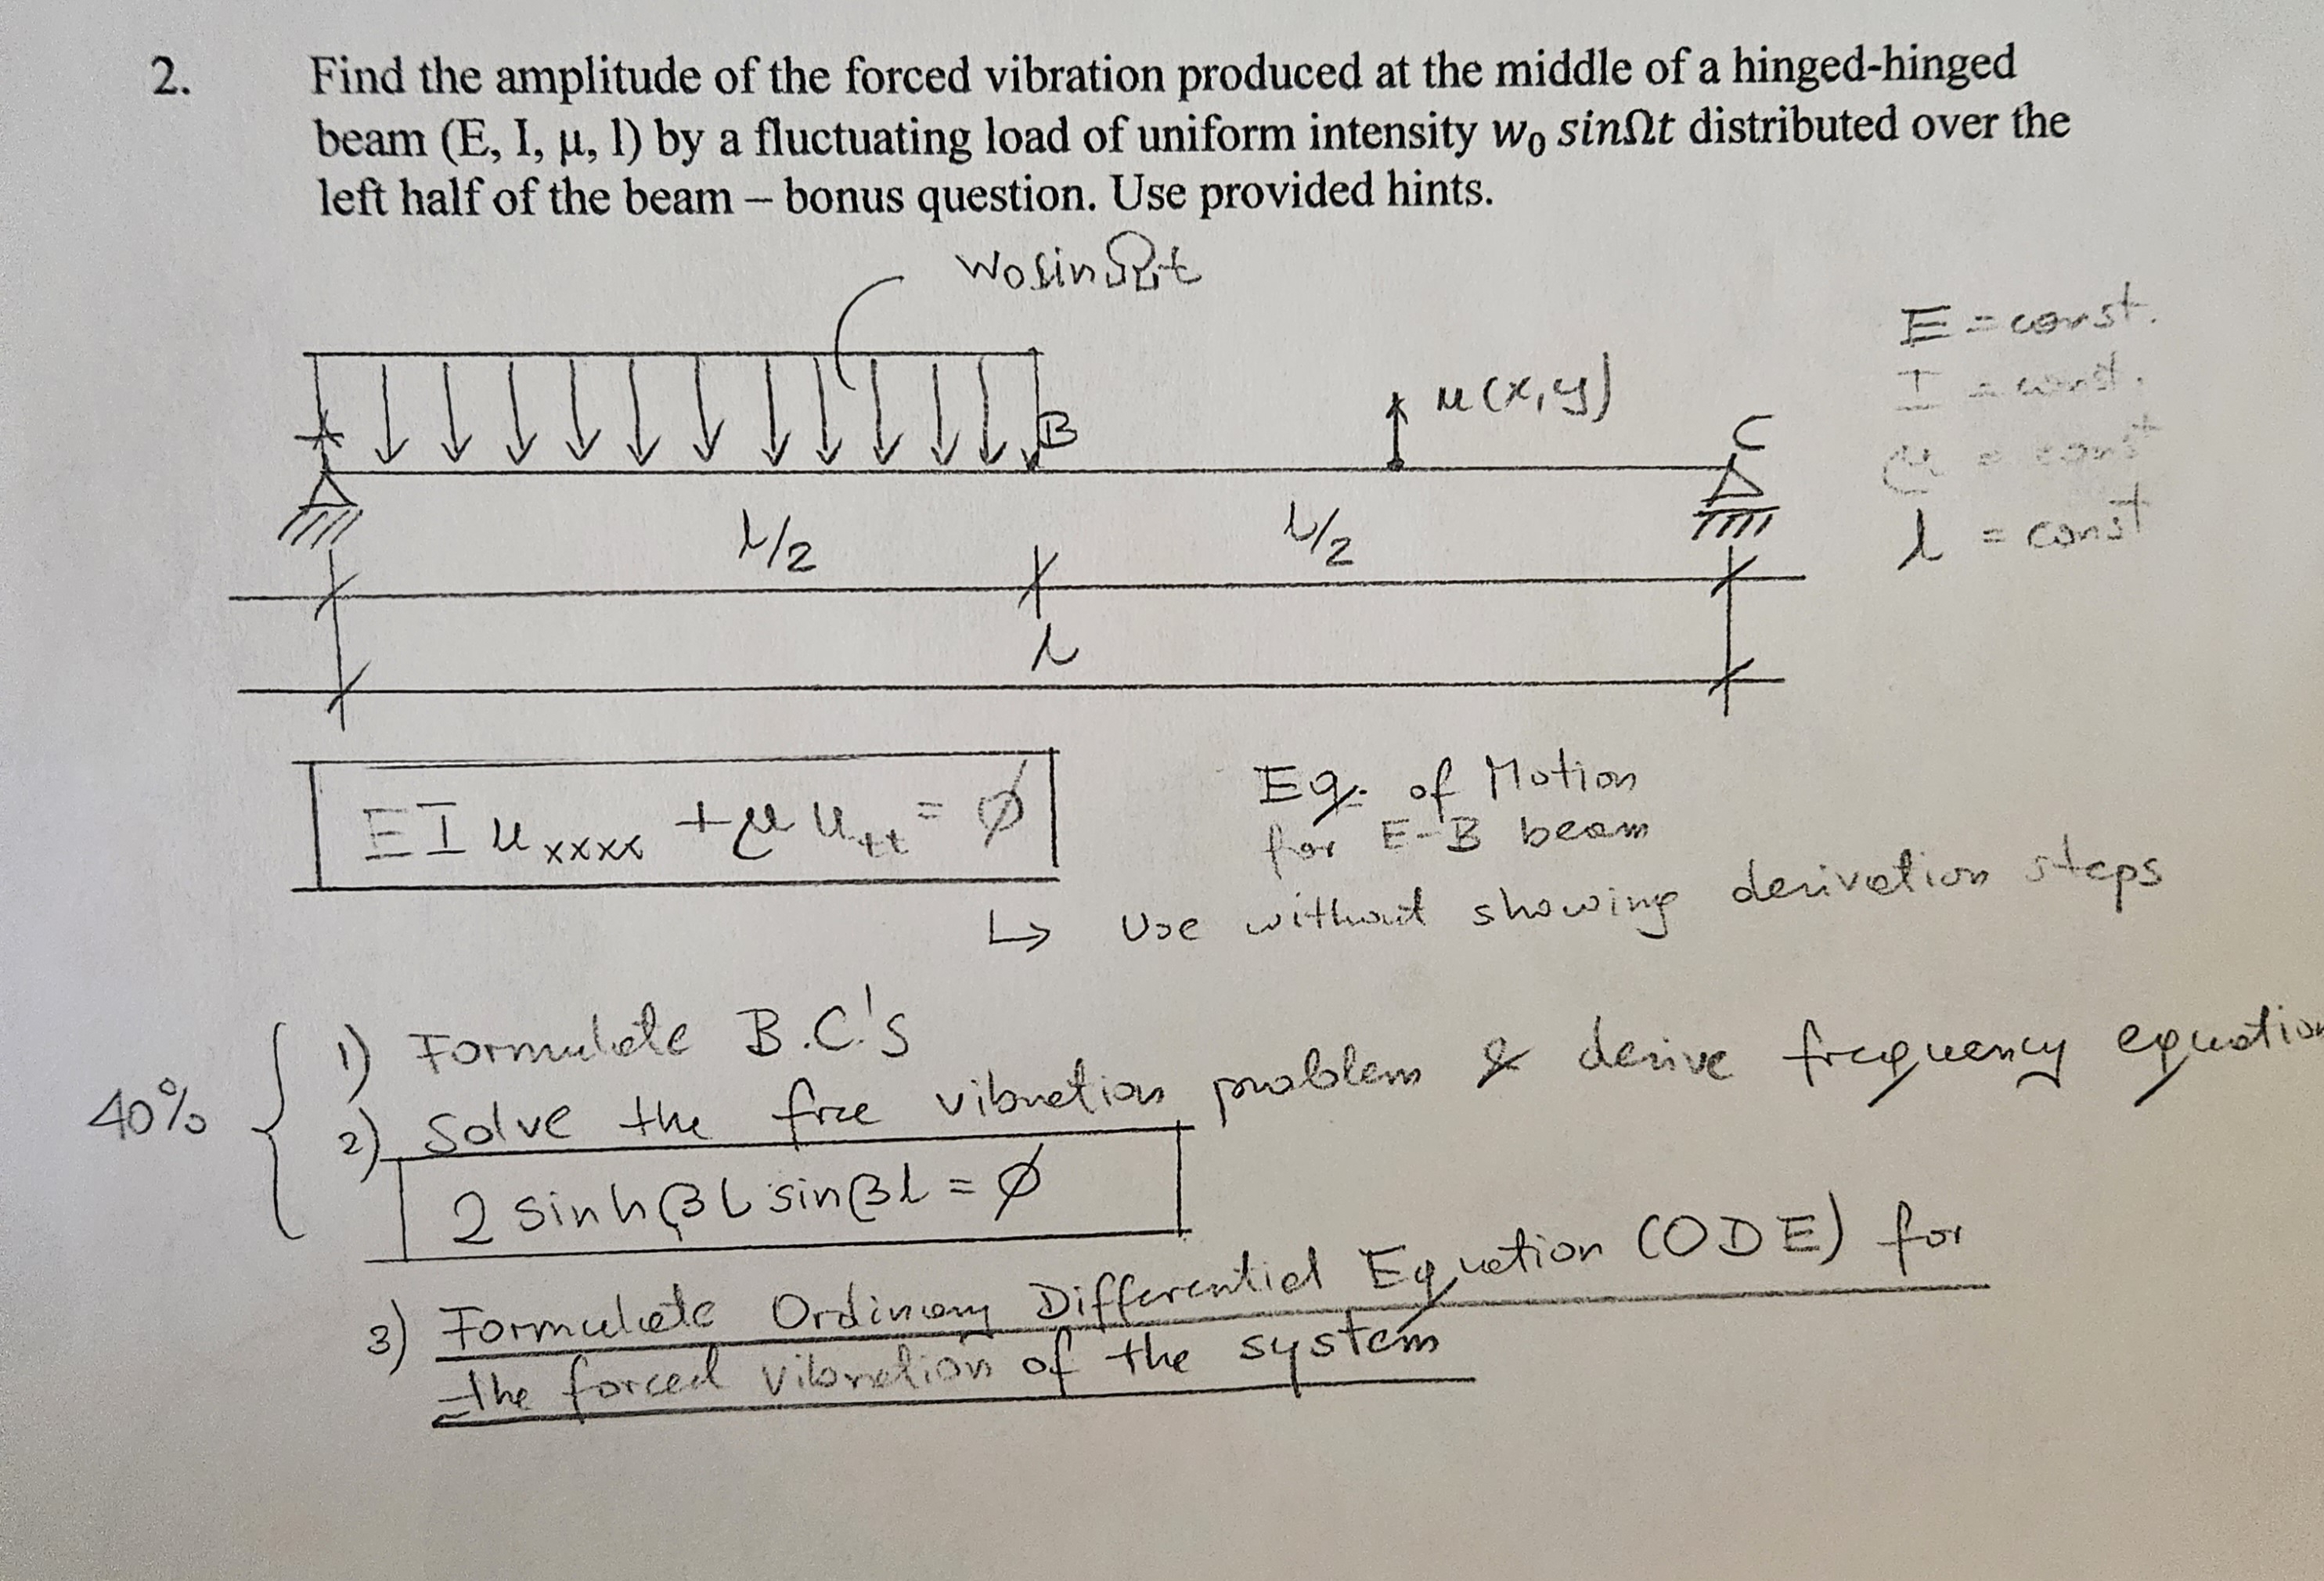 2. Find the amplitude of the forced vibration produced at the middle of a hinged-hinged
beam (E, I, μ, l) by a fluctuating load of uniform intensity w₀ sinΩt distributed over the
left half of the beam – bonus question. Use provided hints.
w₀sinΩt
E = const.
I = const.
μ = const
l = const
A
B
u(x,y)
C
l/2
l/2
l
EI uxxxx + μ utt = ∅
Eq. of Motion
for E-B beam
↳ Use without showing derivation steps
40%
1) Formulate B.C.'s
2) Solve the free vibration problem & derive frequency equation
2 sinhβl sinβl = ∅
3) Formulate Ordinary Differential Equation (ODE) for
the forced vibration of the system